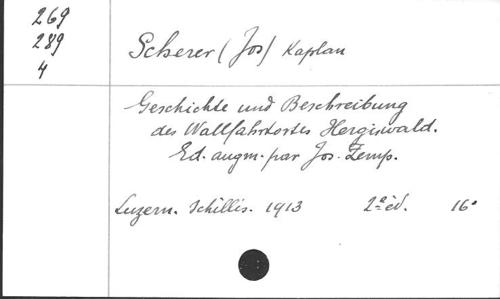 269
289
4
Scherer (Jos) Kaplan
Geschichte und Beschreibung
des Wallfahrtortes Hergiswald.
Ed. augm. par Jos. Zemp.
Luzern. Schillis. 1913 2ᵉ éd. 16°